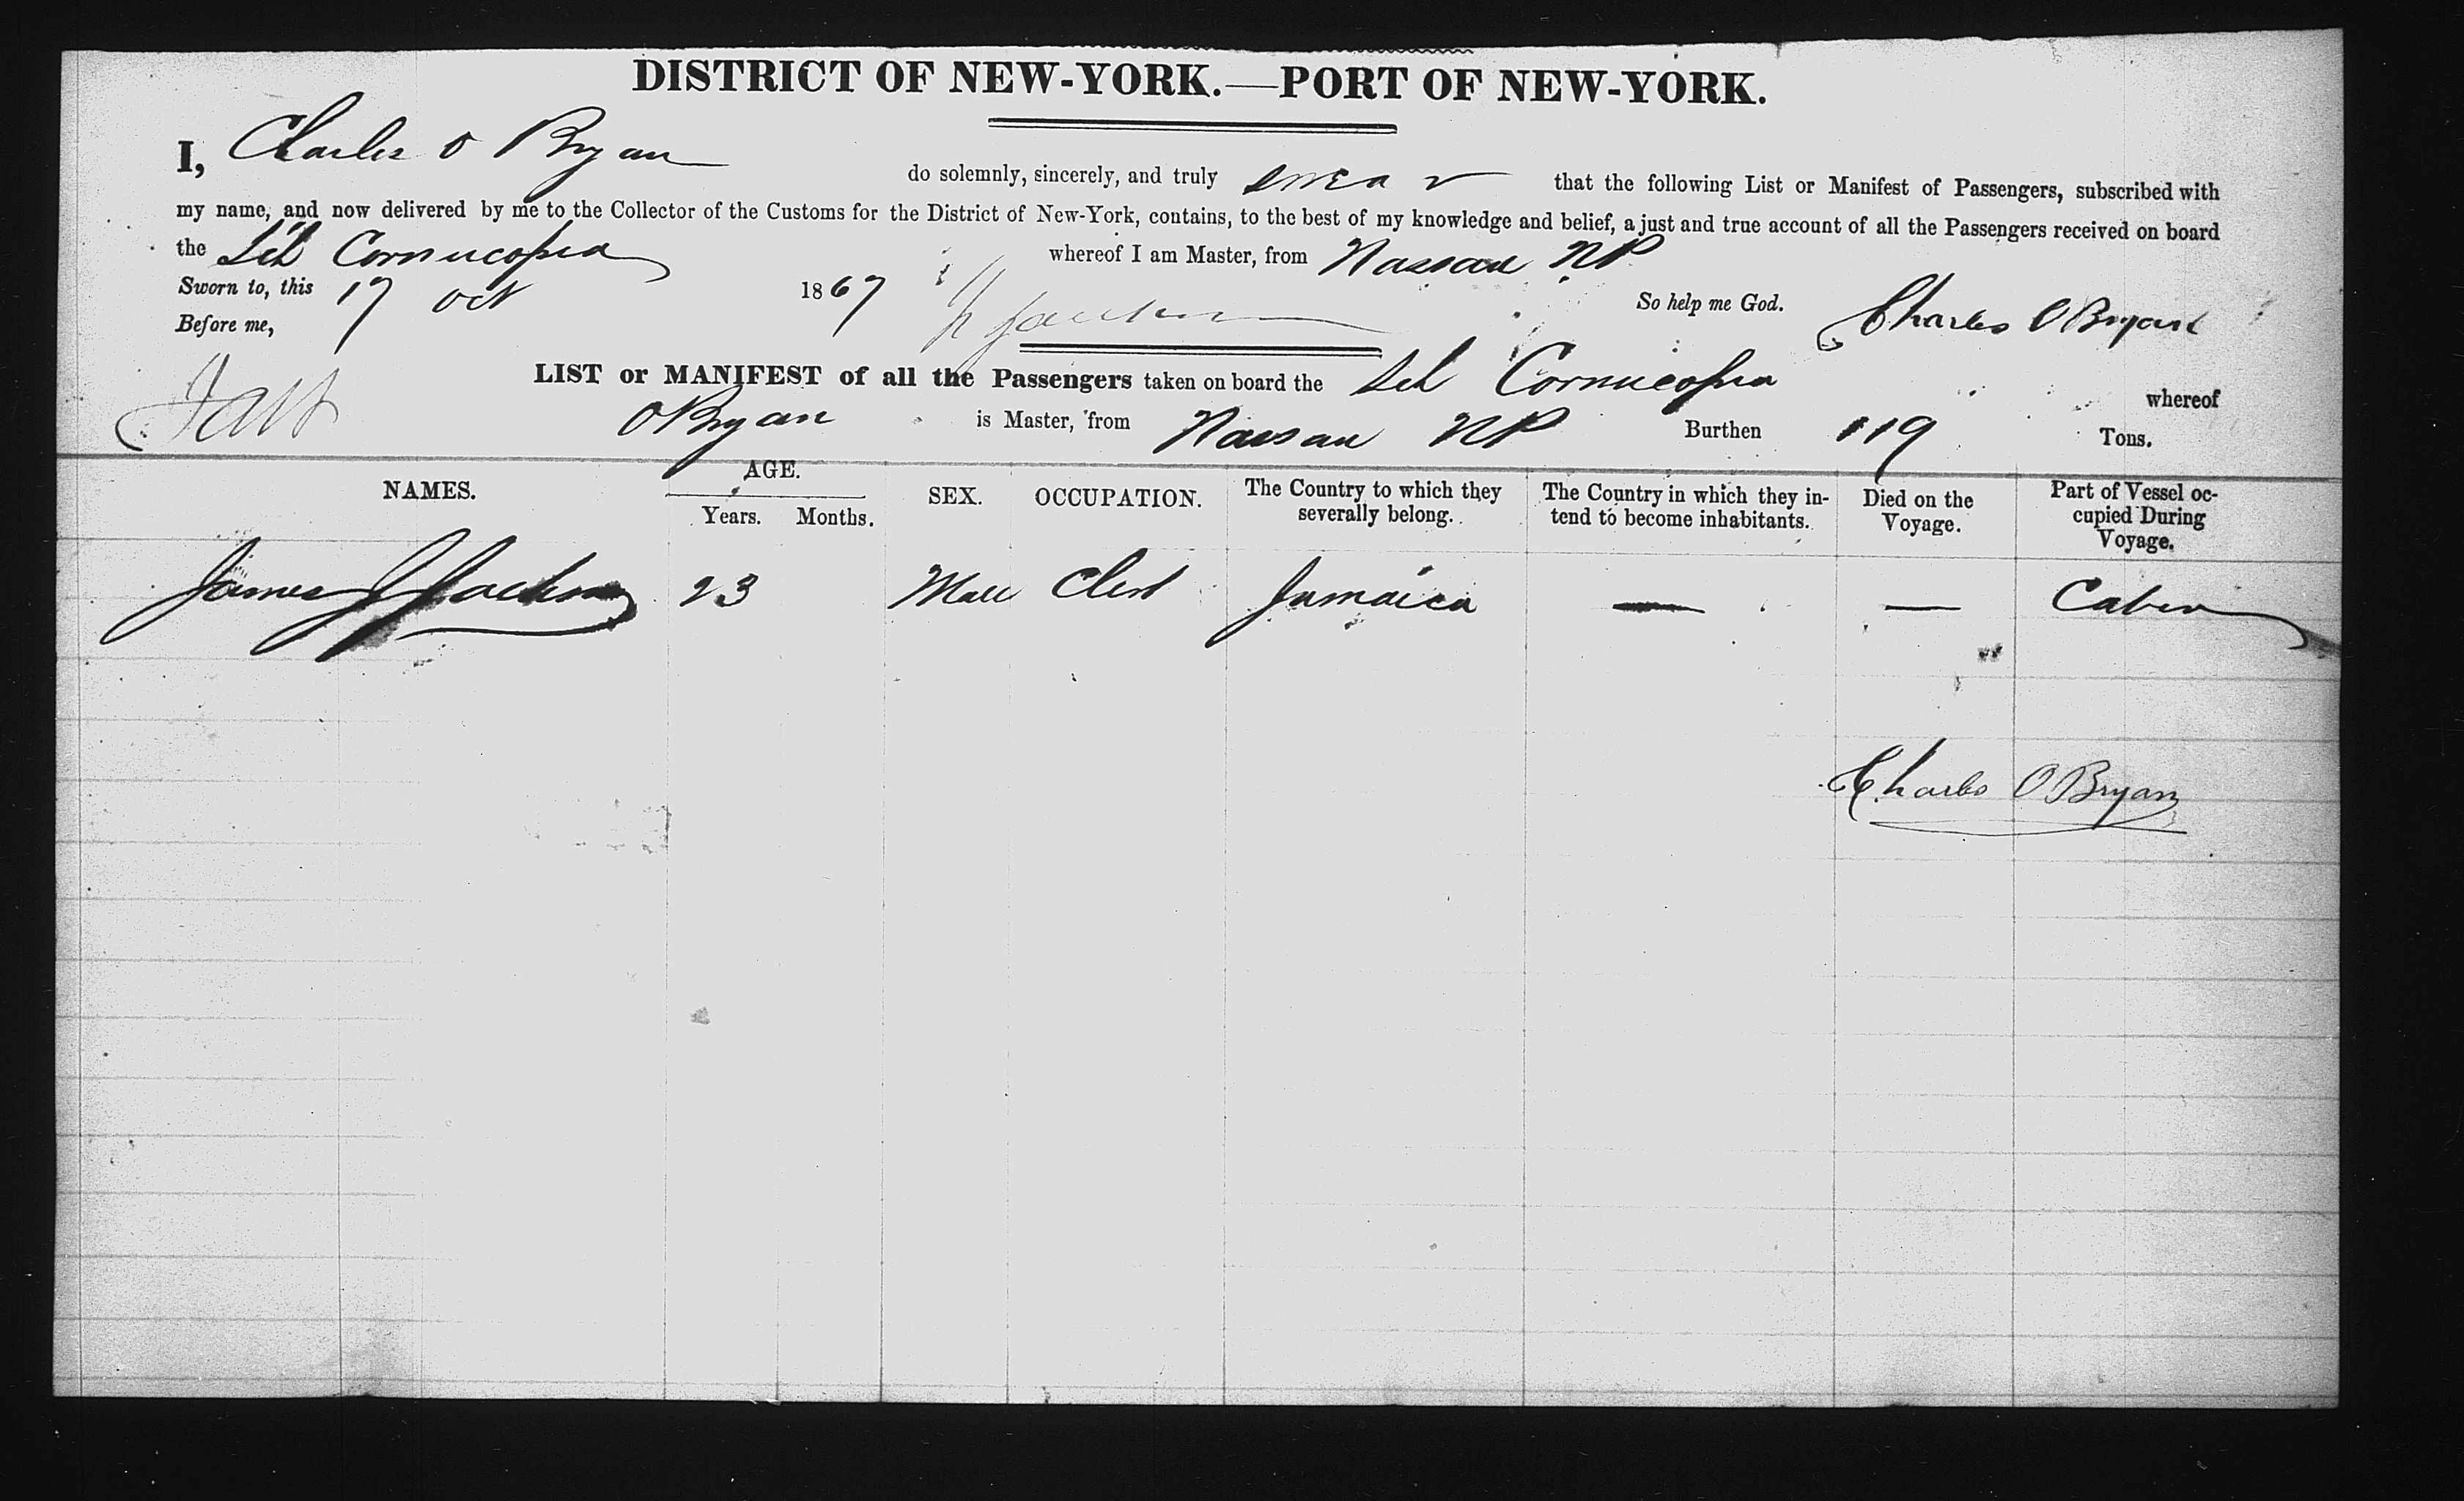 DISTRICT OF NEW-YORK.—PORT OF NEW-YORK.
I, Charles O Bryan do solemnly, sincerely, and truly swear that the following List or Manifest of Passengers, subscribed with
my name, and now delivered by me to the Collector of the Customs for the District of New-York, contains, to the best of my knowledge and belief, a just and true account of all the Passengers received on board
the Sch Cornucopia whereof I am Master, from Nassau NP
Sworn to, this 17 Oct 1867 So help me God. Charles O Bryan
Before me,
LIST or MANIFEST of all the Passengers taken on board the Sch Cornucopia whereof
OBryan is Master, from Nassau NP Burthen 119 Tons.
NAMES. AGE. Years. Months. SEX. OCCUPATION. The Country to which they severally belong. The Country in which they intend to become inhabitants. Died on the Voyage. Part of Vessel occupied During Voyage.
James J Jackson 23 Male Clerk Jamaica — — Cabin
Charles O Bryan